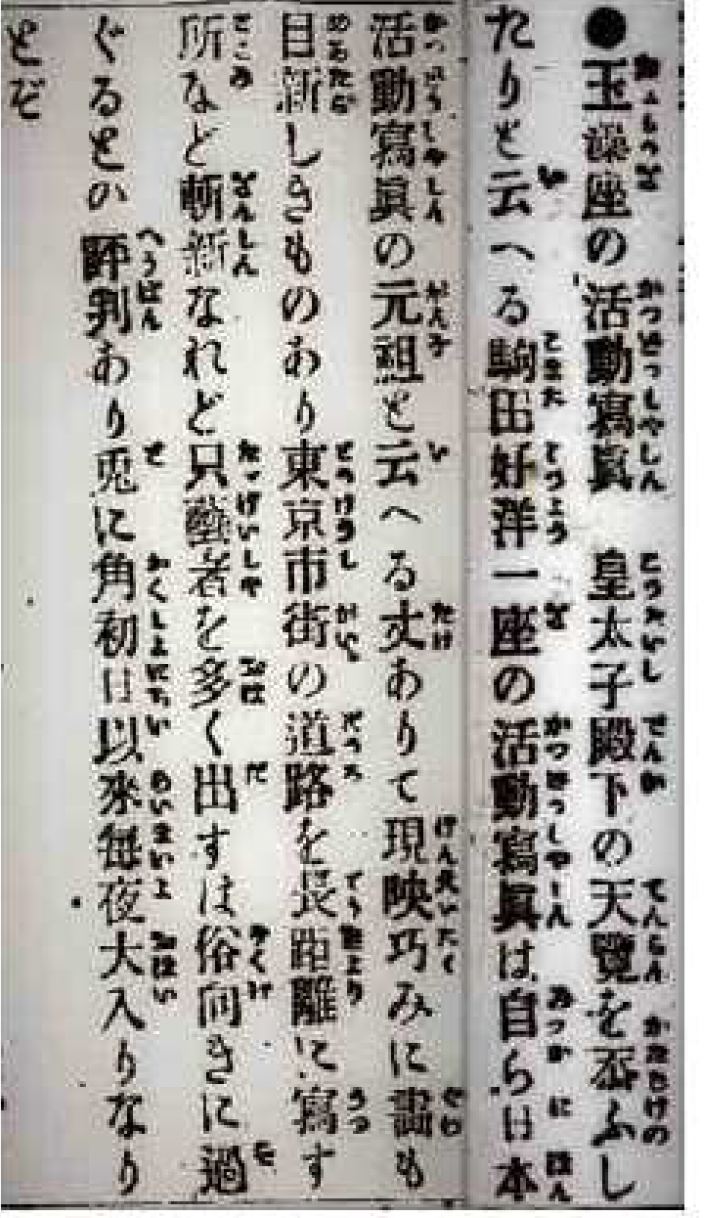 ●玉藻座の活動寫眞　皇太子殿下の天覽を忝ふし
たりと云へる駒田好洋一座の活動寫眞は自ら日本
活動寫眞の元祖と云へる丈ありて現映巧みに畵も
目新しきものあり東京市街の道路を長距離に寫す
所など斬新なれど只藝者を多く出すは俗向きに過
ぐるとの評判あり兎に角初日以來毎夜大入りなり
とぞ